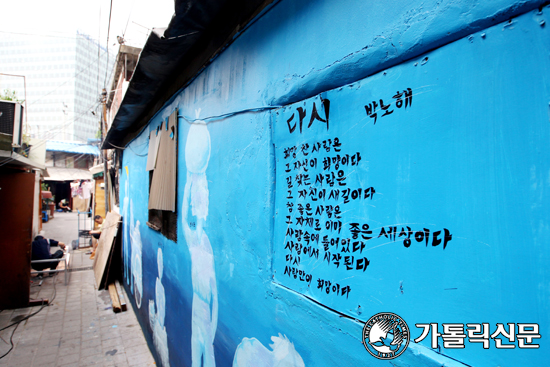 다시
박노해
희망찬 사람은
그 자신이 희망이다
길 찾는 사람은
그 자신이 새 길이다
참 좋은 사람은
그 자체로 이미 좋은 세상이다
사람속에 들어있다
사람에서 시작된다
다시
사람만이 희망이다
가톨릭신문